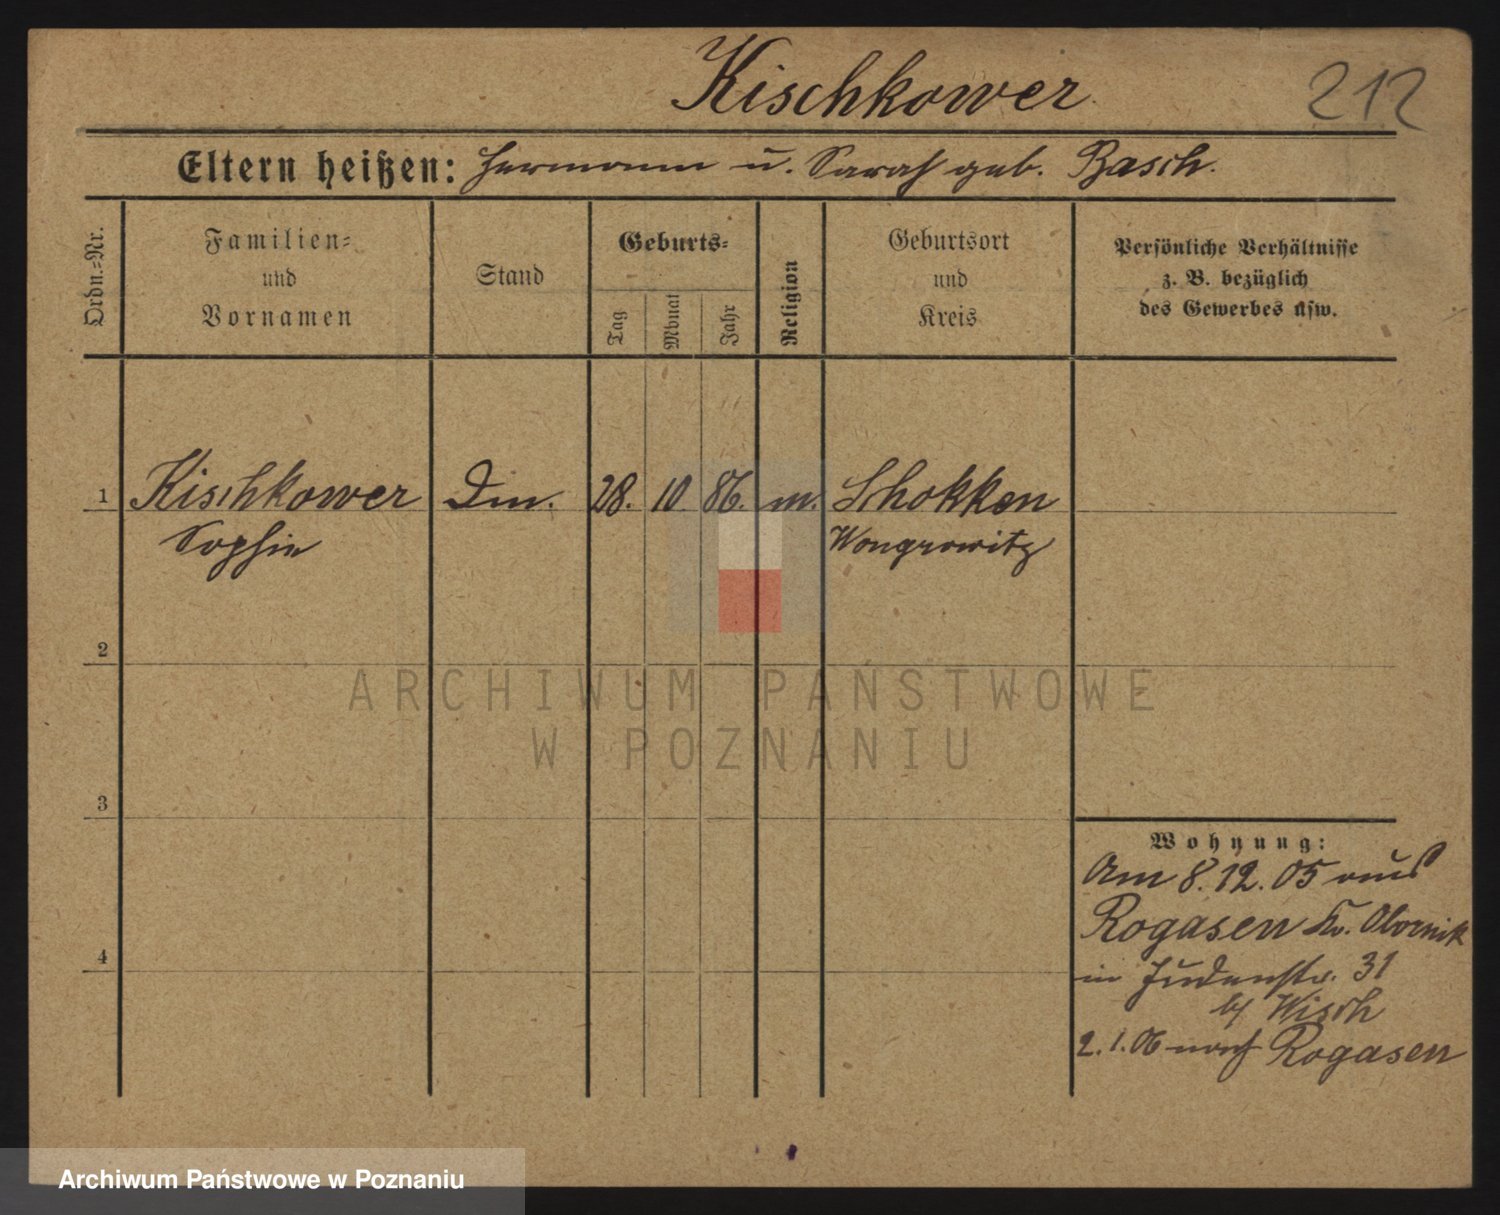 Kischkower
212
Eltern heißen: Hermann u. Sarah geb. Basch.
Ordn.-Nr.
Familien-
und
Vornamen
Stand
Geburts-
Tag
Monat
Jahr
Religion
Geburtsort
und
Kreis
Persönliche Verhältnisse
z. B. bezüglich
des Gewerbes usw.
1 Kischkower Din. 28. 10. 86. m. Schokken
Sophie Wongrowitz
2
3
4
Wohnung:
Am 8.12.05 aus
Rogasen Kr. Obornik
in Judenstr. 31
b/ Wisch
2.1.06 nach Rogasen
ARCHIWUM PAŃSTWOWE
W POZNANIU
Archiwum Państwowe w Poznaniu